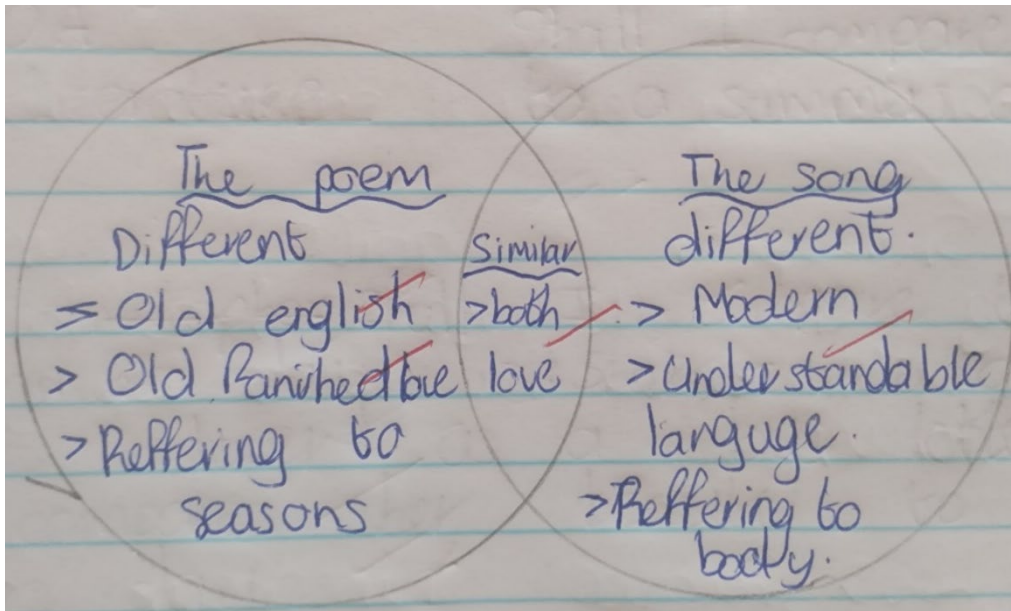 The poem
Different
> Old english
> Old
> Reffering to
seasons
Similar
> both
love
The song
different.
> Modern
> Understandable
languge.
> Reffering to
body.